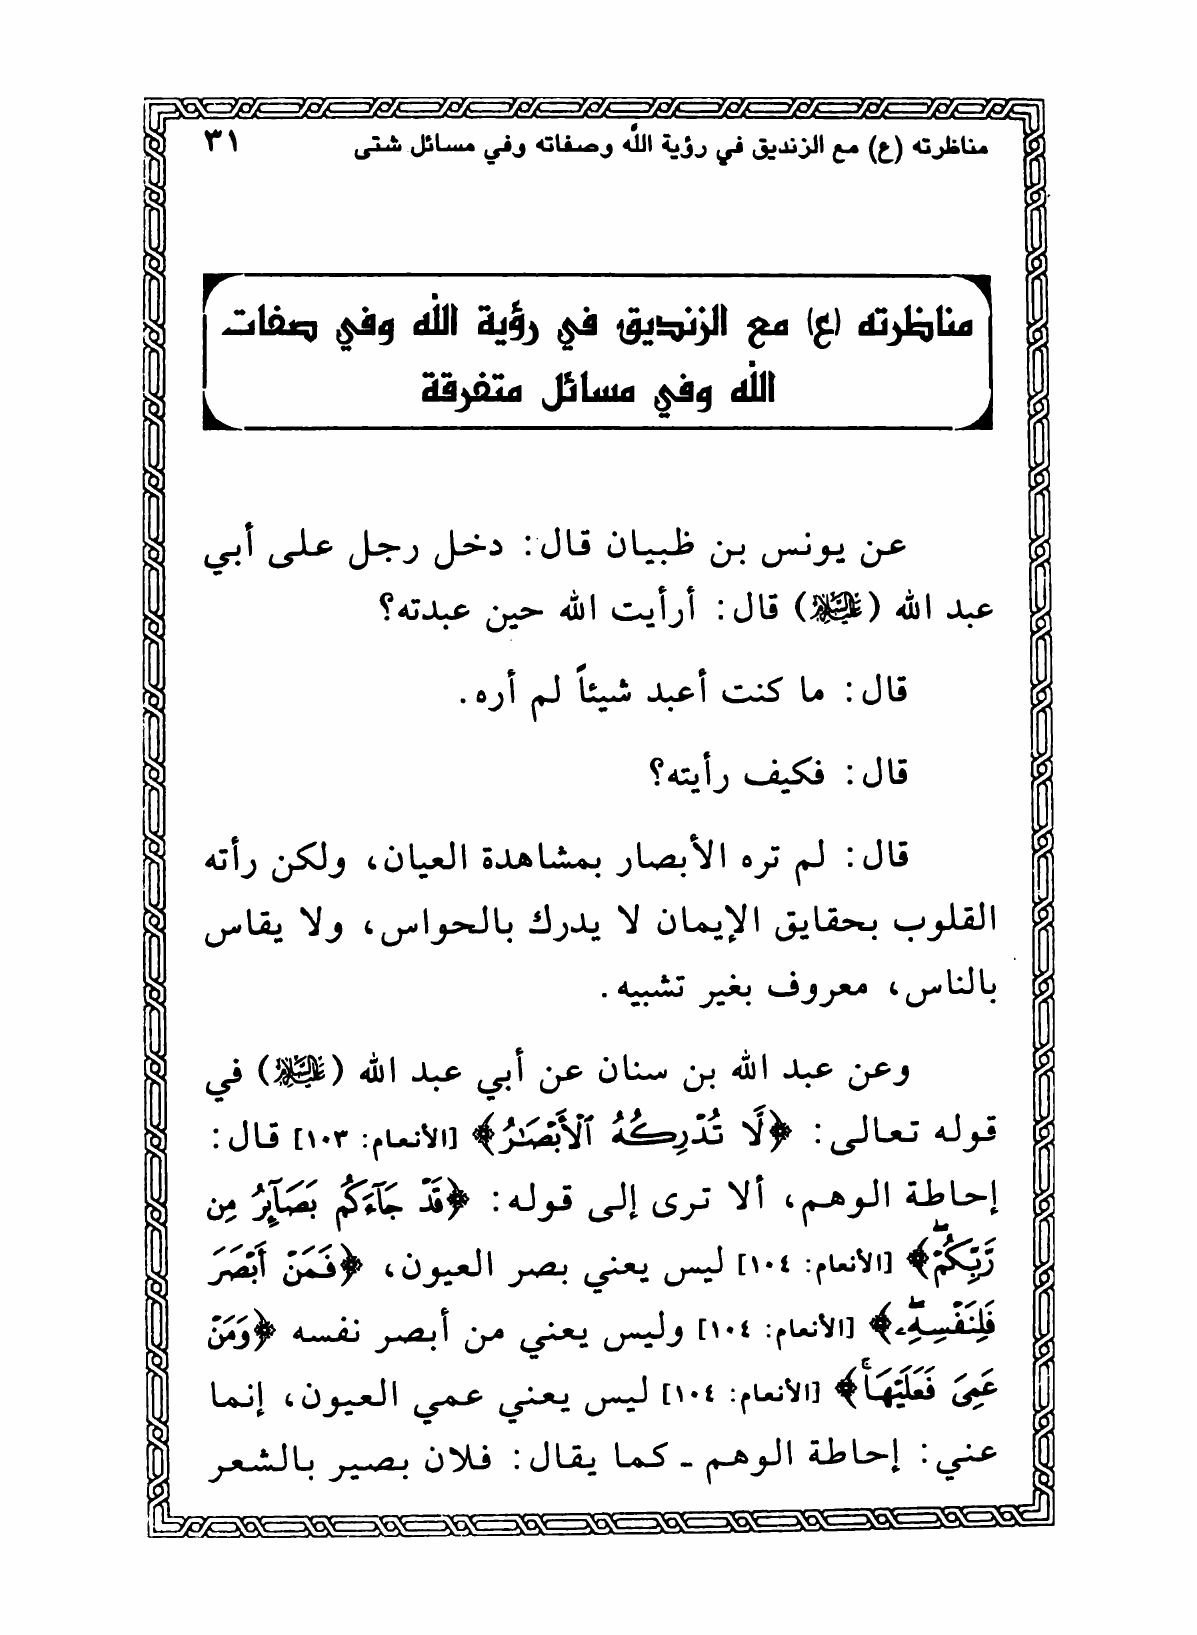 مناظرته (ع) مع الزنديق في رؤية الله وصفاته وفي مسائل شتى ٣١
مناظرته (ع) مع الزنديق في رؤية الله وفي صفات
الله وفي مسائل متفرقة
عن يونس بن ظبيان قال: دخل رجل على أبي
عبد الله (عليه السلام) قال: أرأيت الله حين عبدته؟
قال: ما كنت أعبد شيئاً لم أره.
قال: فكيف رأيته؟
قال: لم تره الأبصار بمشاهدة العيان، ولكن رأته
القلوب بحقايق الإيمان لا يدرك بالحواس، ولا يقاس
بالناس، معروف بغير تشبيه.
وعن عبد الله بن سنان عن أبي عبد الله (عليه السلام) في
قوله تعالى: ﴿لَّا تُدْرِكُهُ ٱلْأَبْصَٰرُ﴾ [الأنعام: ١٠٣] قال:
إحاطة الوهم، ألا ترى إلى قوله: ﴿قَدْ جَآءَكُم بَصَآئِرُ مِن
رَّبِّكُمْ ۖ﴾ [الأنعام: ١٠٤] ليس يعني بصر العيون، ﴿فَمَنْ أَبْصَرَ
فَلِنَفْسِهِۦ ۖ﴾ [الأنعام: ١٠٤] وليس يعني من أبصر نفسه ﴿وَمَنْ
عَمِىَ فَعَلَيْهَا ۚ﴾ [الأنعام: ١٠٤] ليس يعني عمي العيون، إنما
عني: إحاطة الوهم ـ كما يقال: فلان بصير بالشعر